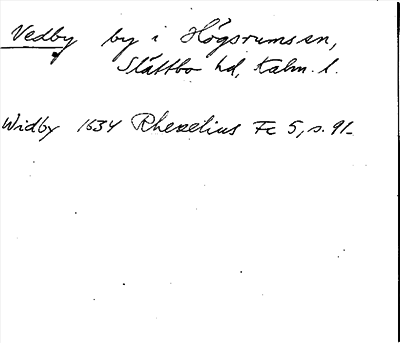 Vedby by i Högsrums sn,
Slättbo hd, Kalm. l.
Widby 1634 Rhezelius Fc 5, s. 91.